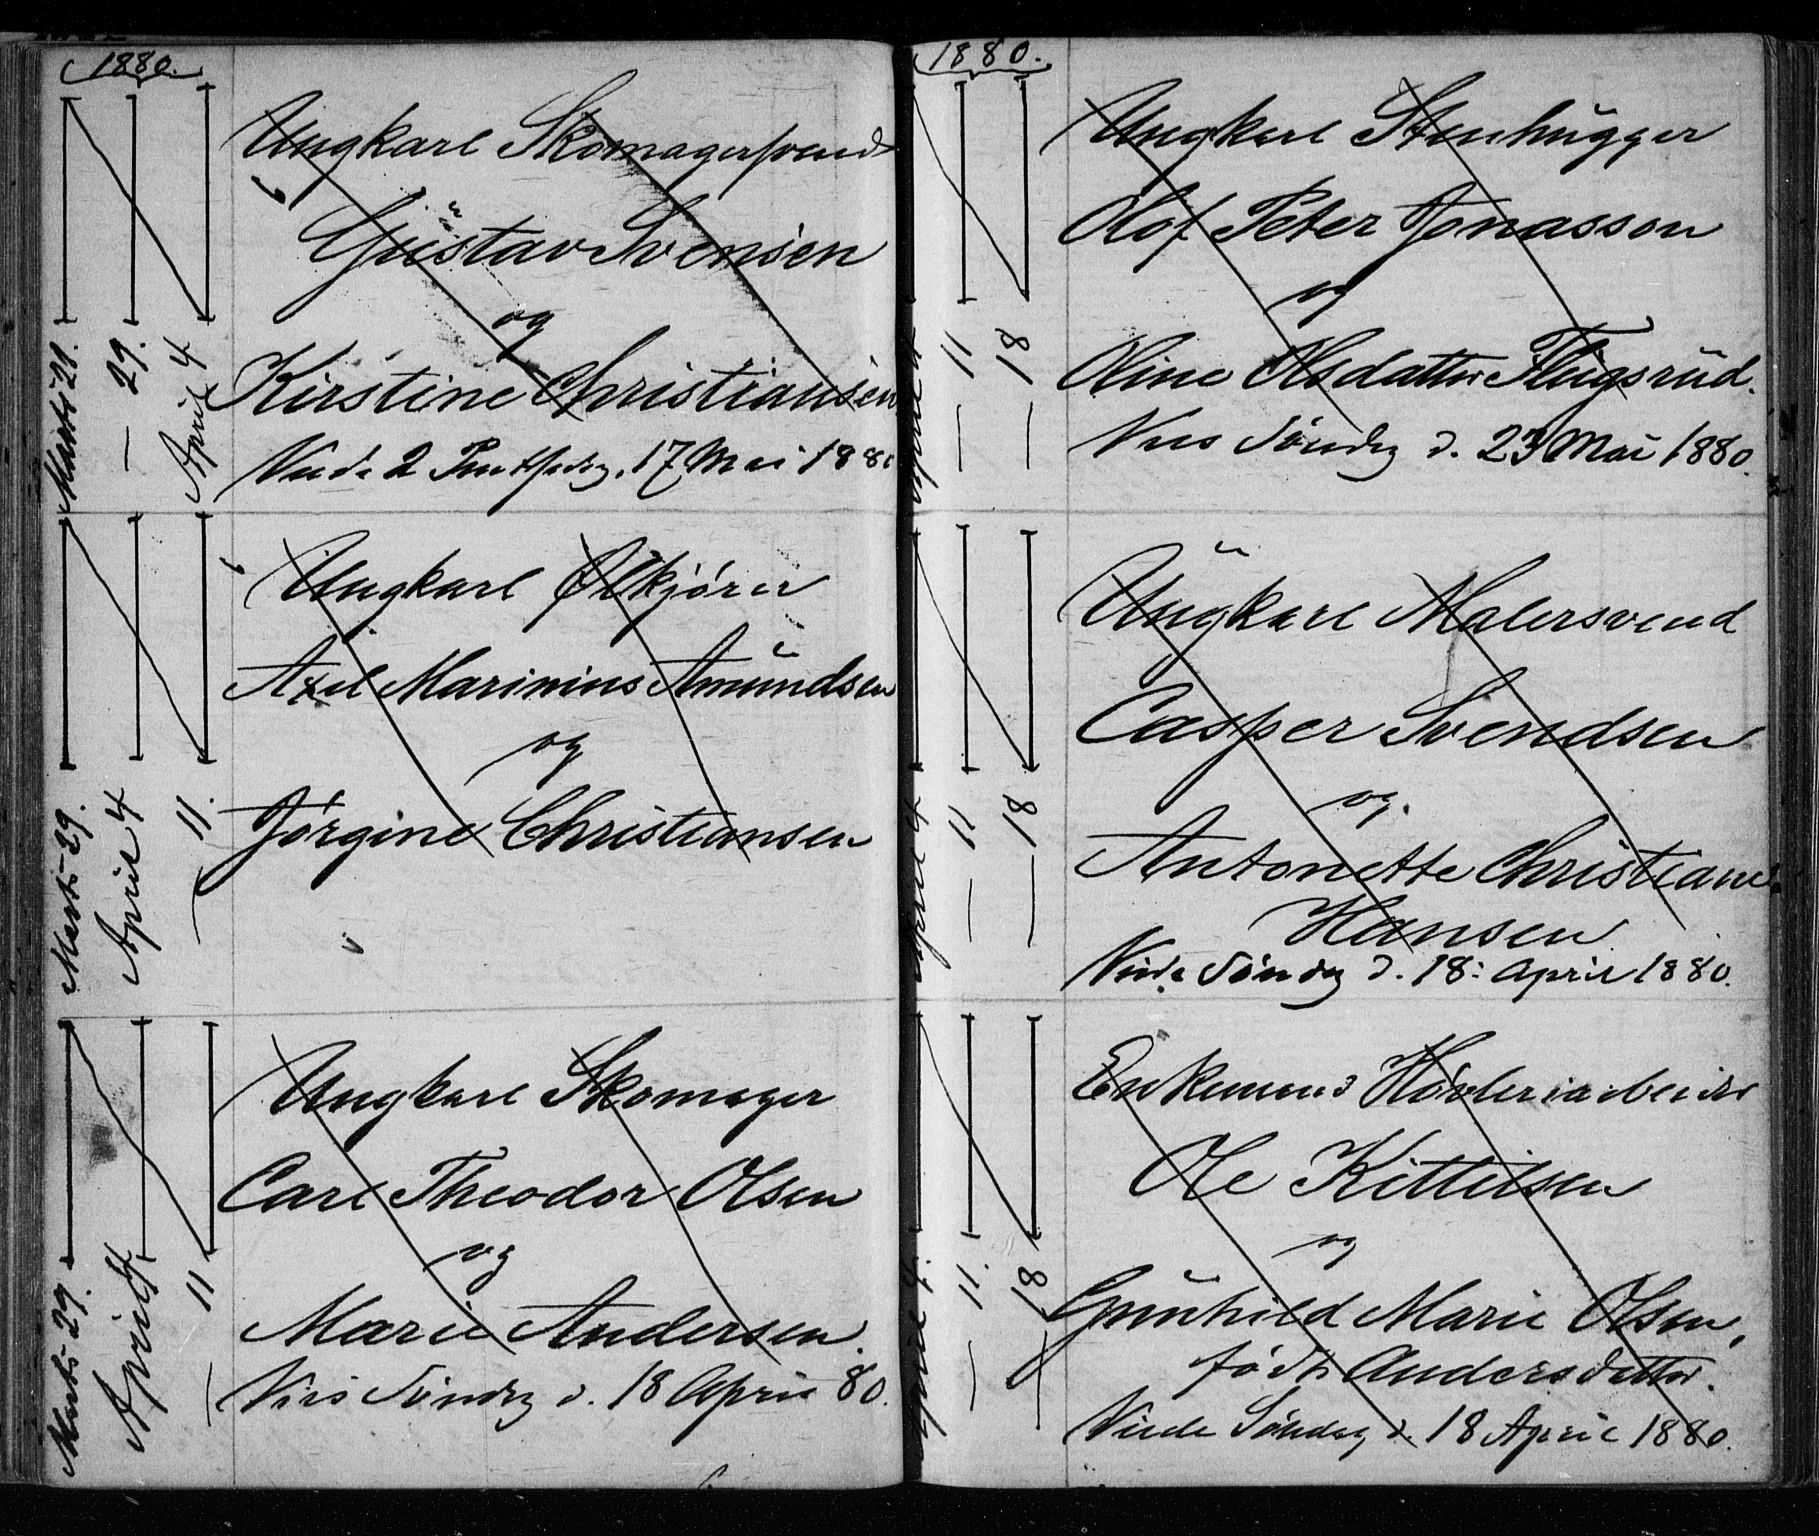 1880.
Marts 28.
— 29.
April 4
Ungkarl Skomagersvend
Gustav Svensen
og
Kirstine Christiansen
17 Mai 188
Marts 29.
April 4
— 11.
Ungkarl Ølkjører
Axel Marinius Amundsen
og
Jørgine Christiansen
Marts 29.
April 4
— 11
Ungkarl Skomager
Carl Theodor Olsen
og
Marie Andersen.
Vies Søndag d. 18 April 80.
1880.
April 4
— 11
— 18
Ungkarl Stenhugger
Olof Peter Jonasson
og
Oline Olsdatter Flugsrud.
Vies Søndag d. 23 Mai 1880.
April 4
— 11
— 18
Ungkarl Malersvend
Casper Svendsen
og.
Antonette Christiane
Hansen
Viede Søndag d. 18: April 1880.
April 4.
— 11.
— 18
Enkemand Høvleriarbeider
Ole Kittilsen
og
Gunhild Marie Olsen,
født Andersdatter.
Viede Søndag d. 18 April 1880.